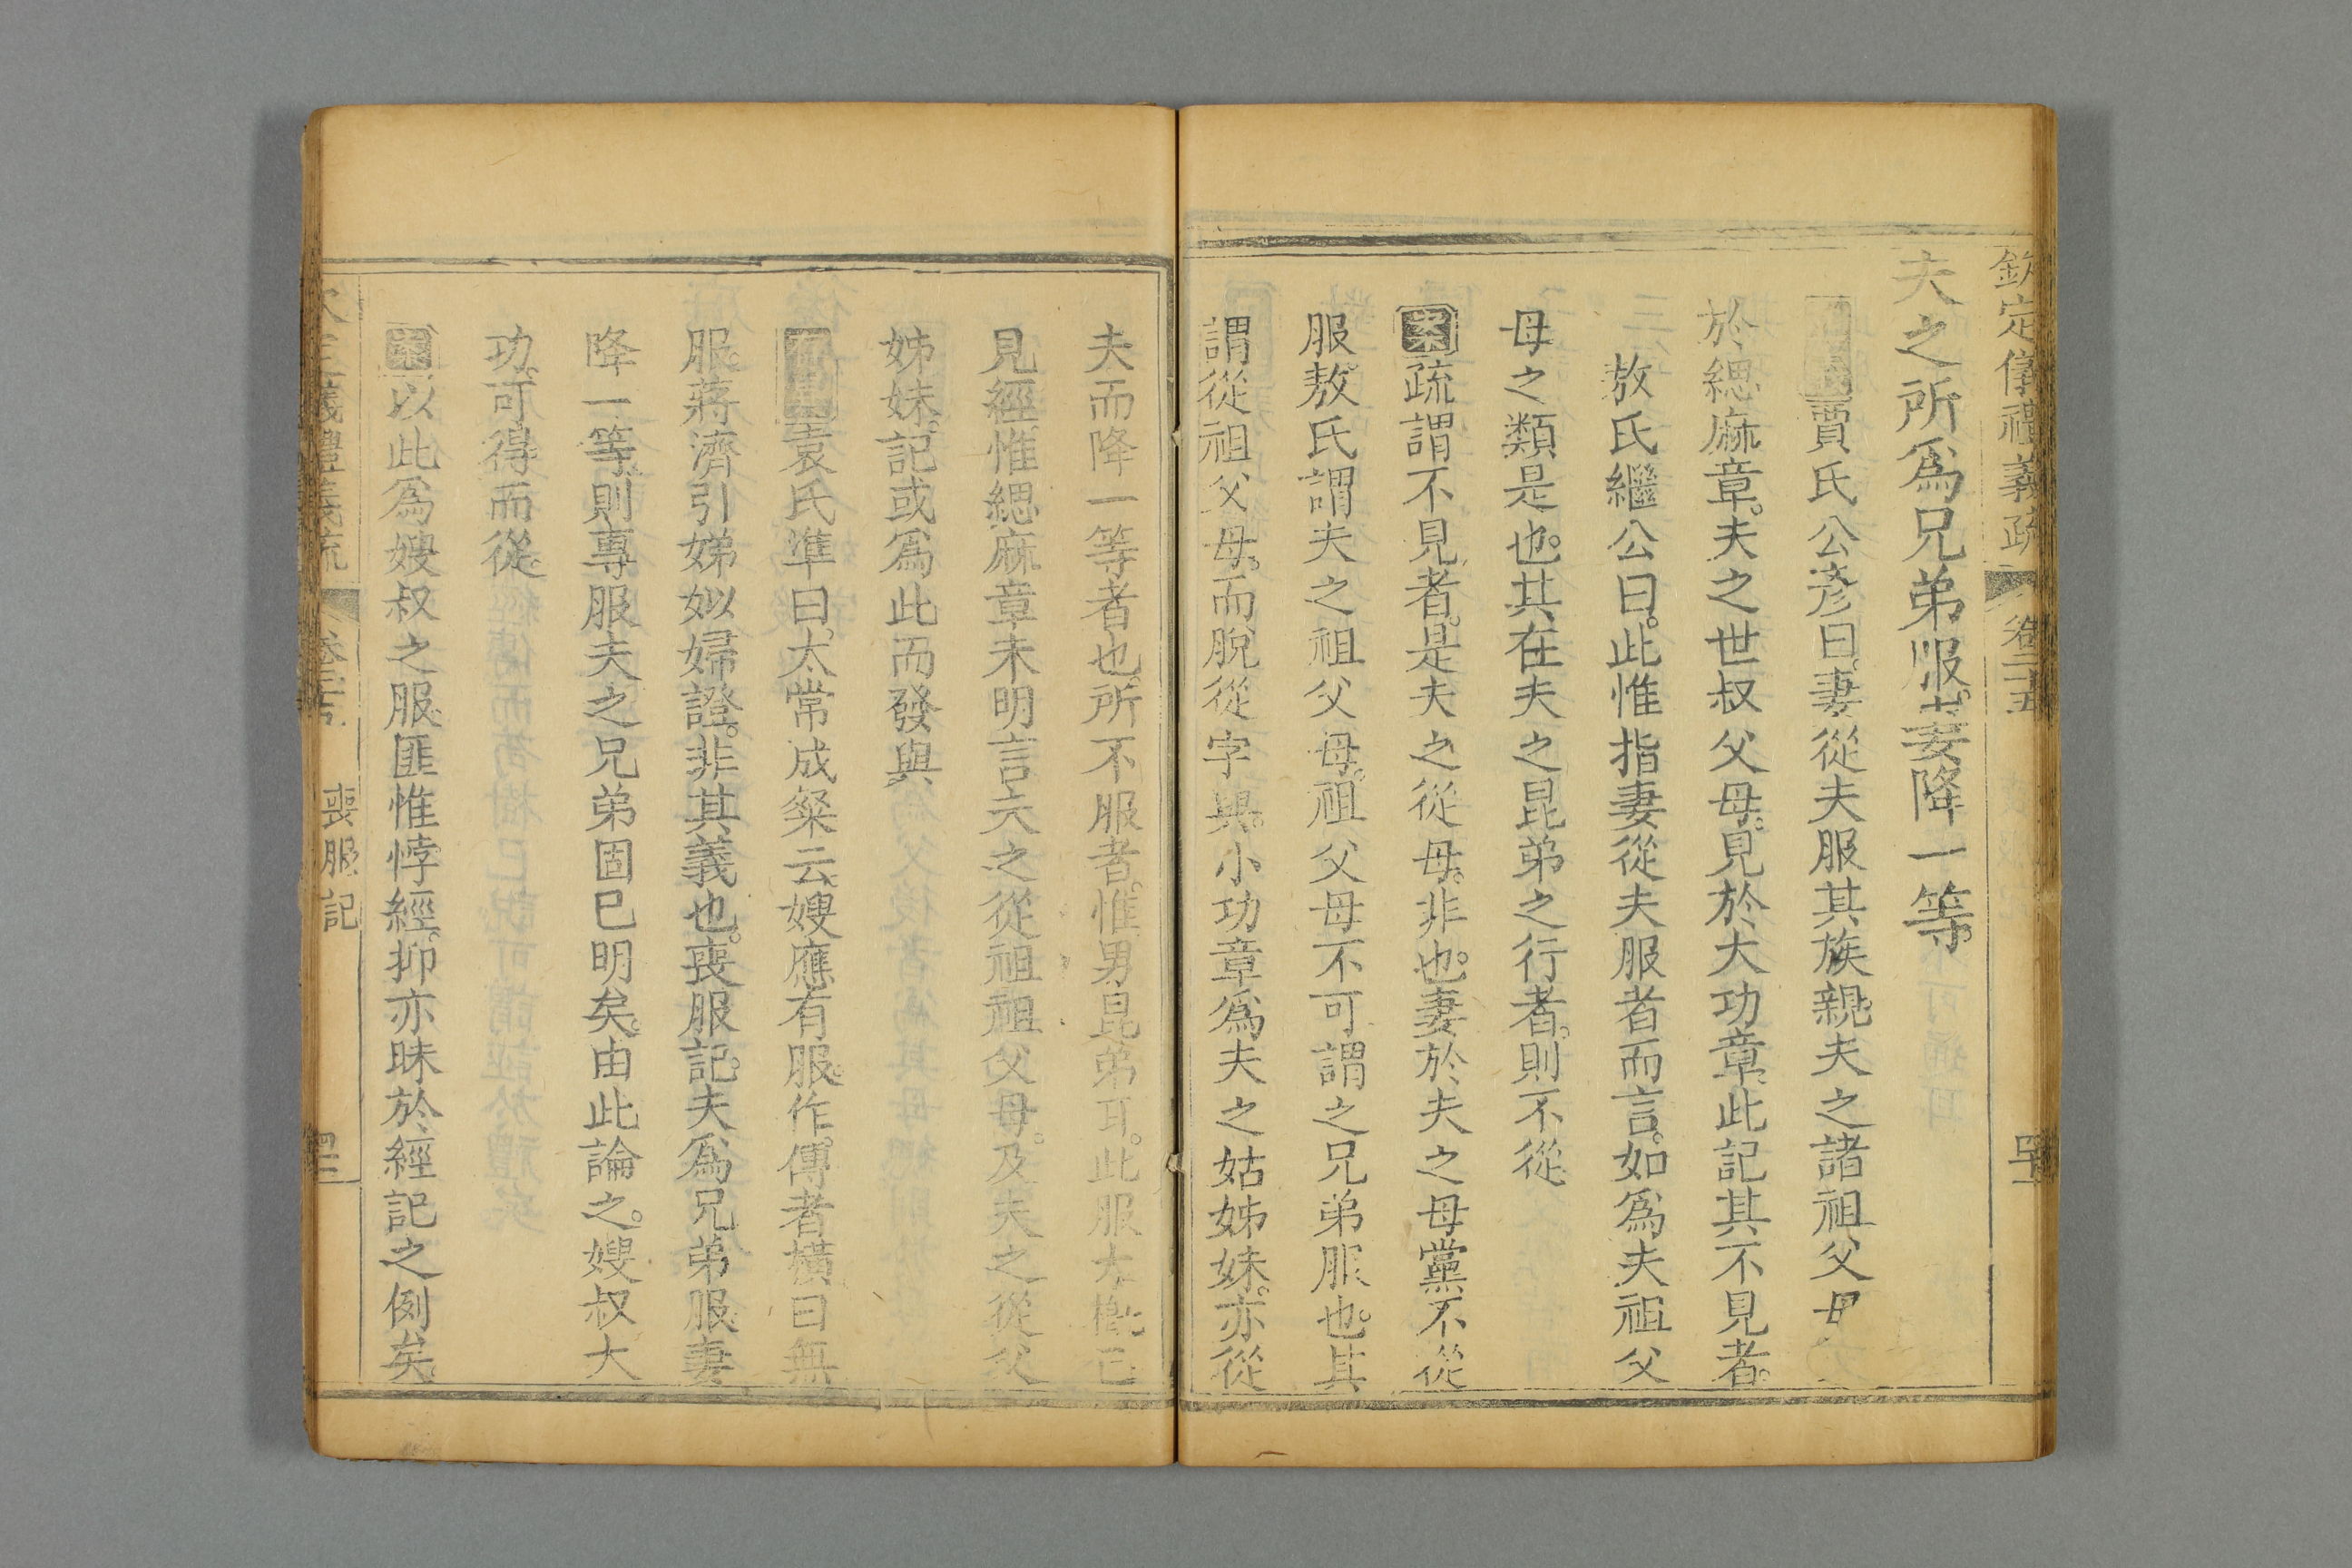 欽定儀禮義疏　卷二十五　四十二
夫之所爲兄弟服。妻降一等。
賈氏公彥曰。妻從夫服其族親。夫之諸祖父母
於緦麻章。夫之世叔父母。見於大功章。此記其不見者。
敖氏繼公曰。此惟指妻從夫服者而言。如爲夫祖父
母之類是也。其在夫之昆弟之行者。則不從
案疏謂不見者。是夫之從母。非也。妻於夫之母黨不從
服。敖氏謂夫之祖父母。祖父母不可謂之兄弟服也。其
謂從祖父母。而脫從字與。小功章爲夫之姑姊妹。亦從
夫而降一等者也。所不服者。惟男昆弟耳。此服大槪已
見經。惟緦麻章未明言夫之從祖祖父母。及夫之從父
姊妹。記或爲此而發與
袁氏準曰。太常成粲云。嫂應有服。作傳者橫曰無
服。蔣濟引娣姒婦證。非其義也。喪服記。夫爲兄弟服。妻
降一等。則專服夫之兄弟固已明矣。由此論之。嫂叔大
功。可得而從。
案以此爲嫂叔之服。匪惟悖經。抑亦昧於經記之例矣。
義禮義疏　喪服記